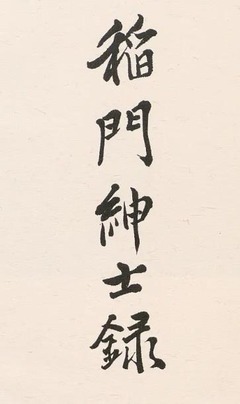 稲門紳士録